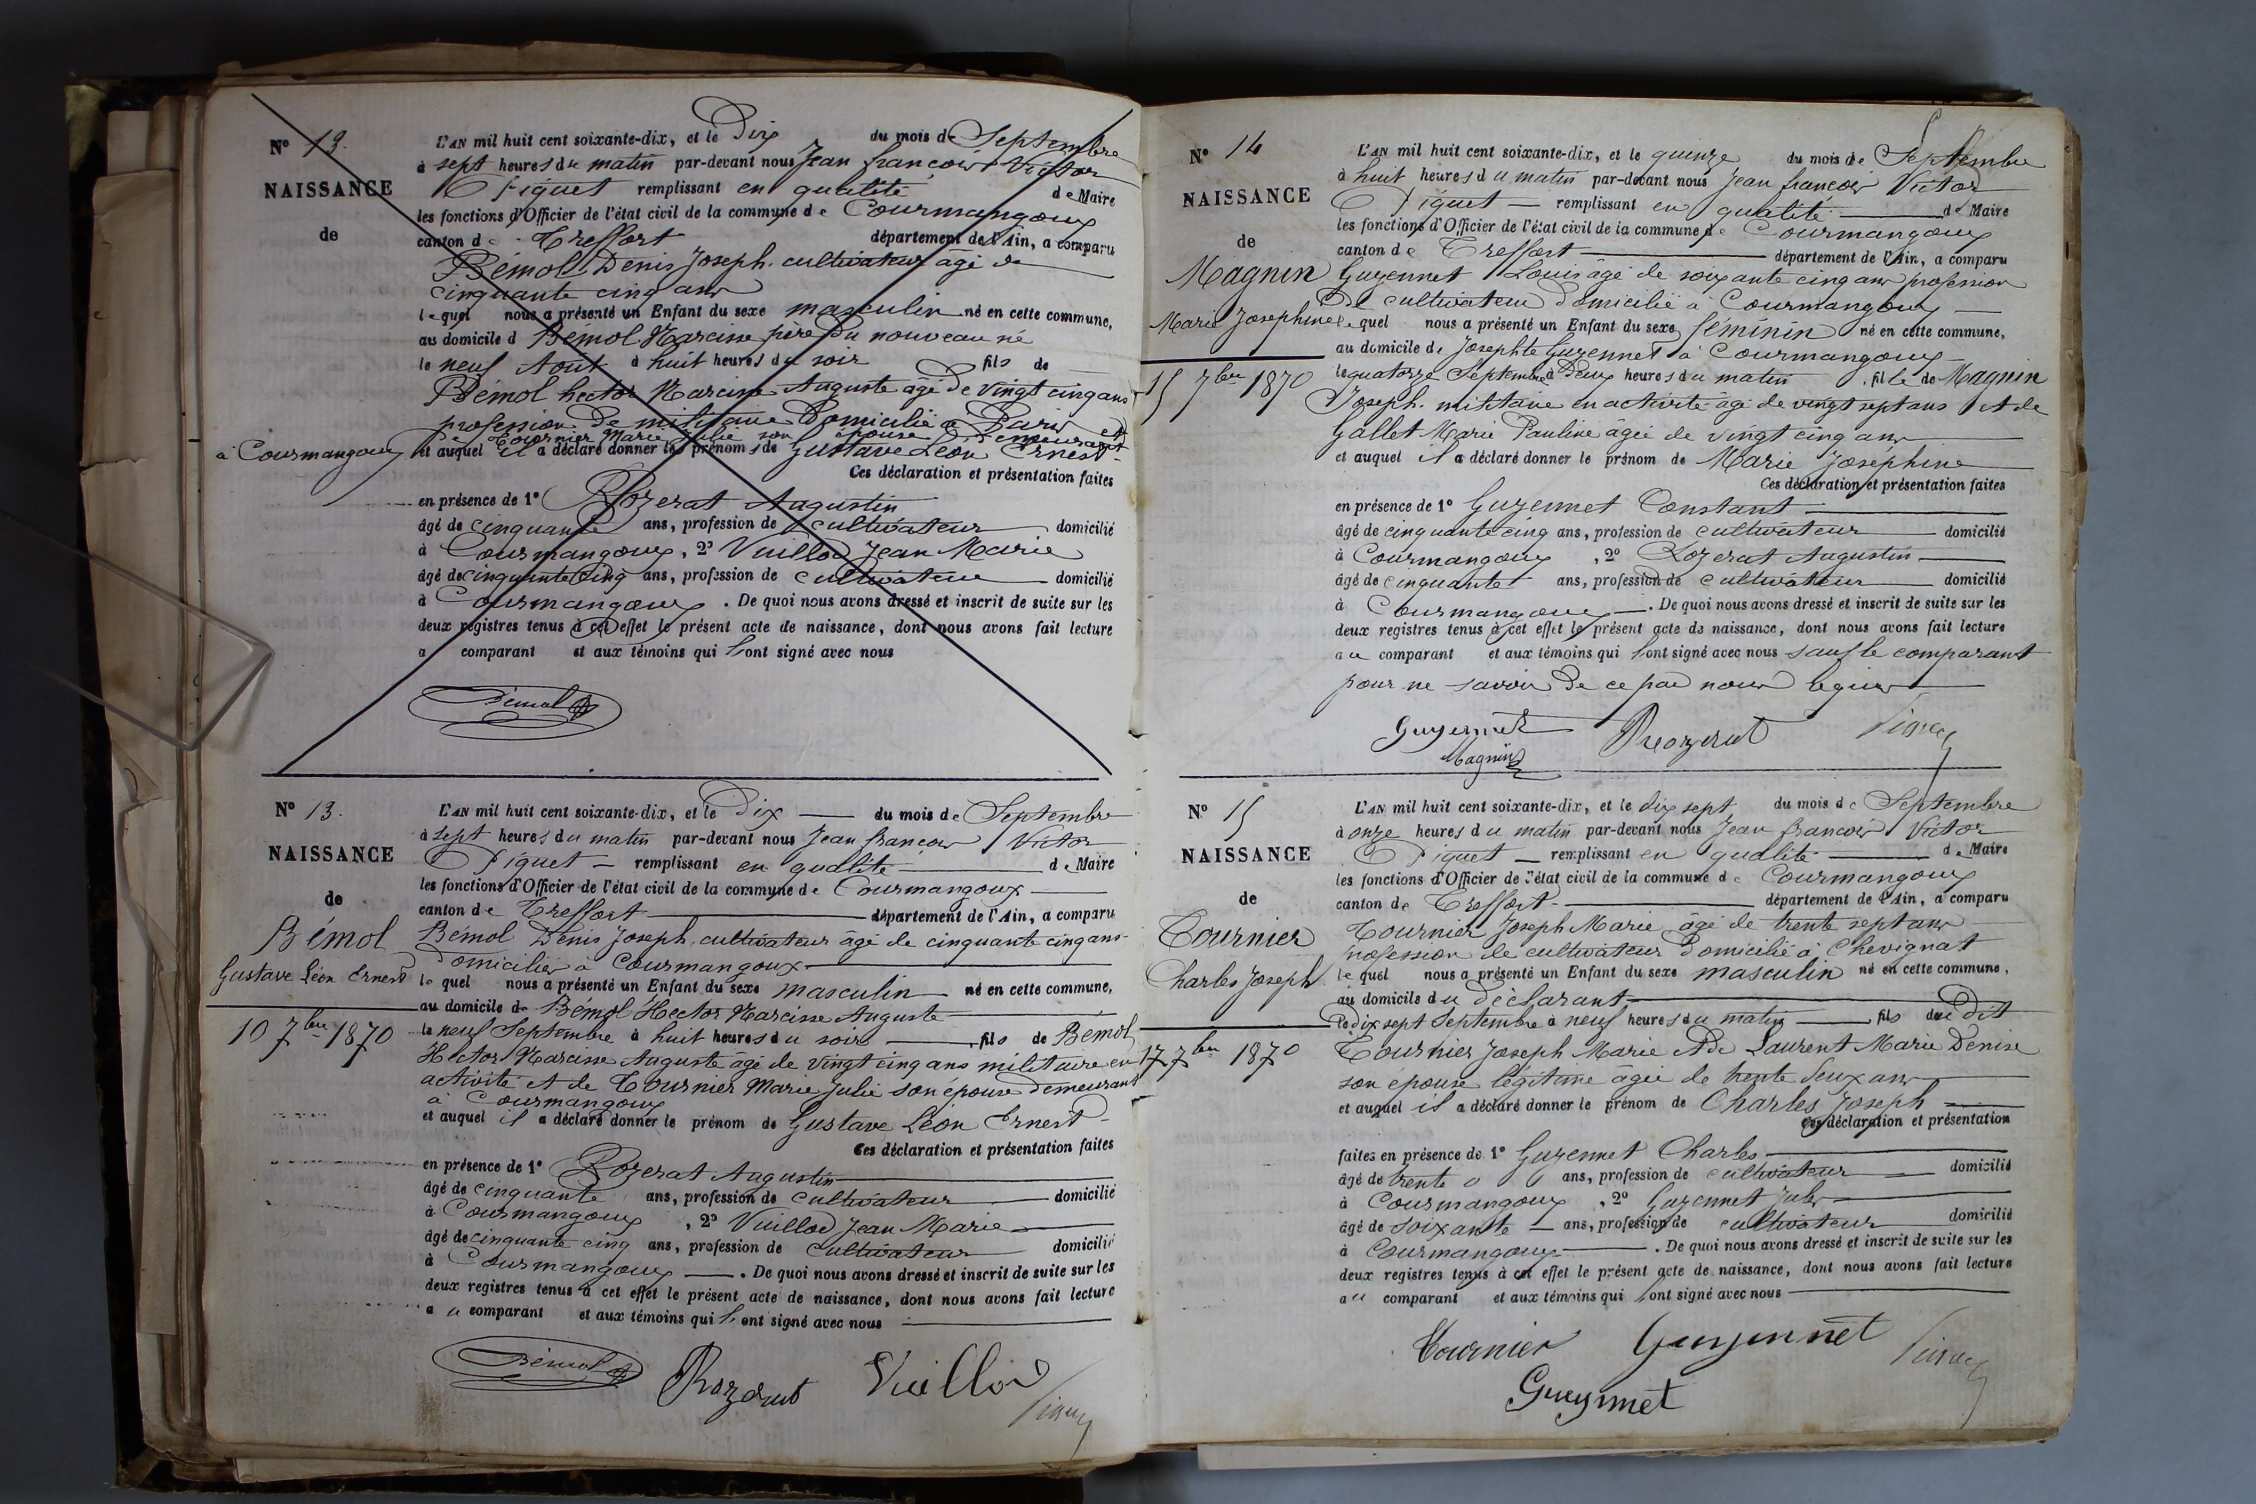 N° 13.
NAISSANCE
de
à Courmangoux
L'AN mil huit cent soixante-dix, et le Dix du mois de Septembre
à sept heures du matin par-devant nous Jean françois Victor
Piquet remplissant en qualité de Maire
les fonctions d'Officier de l'état civil de la commune de Courmangoux
canton de Treffort département de l'Ain, a comparu
Bémol Denis Joseph cultivateur âgé de
cinquante cinq ans
lequel nous a présenté un Enfant du sexe masculin né en cette commune,
au domicile d Bémol Narcisse père du nouveau né
le neuf Aout à huit heures du soir fils de
Bémol hector Narcisse Auguste âgé de vingt cinq ans
profession de militaire domicilié à Paris et
de Tournier Marie Julie son épouse demeurant
et auquel il a déclaré donner les prénoms de Gustave Léon Ernest
Ces déclaration et présentation faites
en présence de 1° Rozerat Augustin
âgé de cinquante ans, profession de cultivateur domicilié
à Courmangoux, 2° Vuillod Jean Marie
âgé de cinquante cinq ans, profession de cultivateur domicilié
à Courmangoux. De quoi nous avons dressé et inscrit de suite sur les
deux registres tenus à cet effet le présent acte de naissance, dont nous avons fait lecture
a comparant et aux témoins qui l'ont signé avec nous
Bémol
N° 13.
NAISSANCE
de
Bémol
Gustave Léon Ernest
10 7bre 1870
L'AN mil huit cent soixante-dix, et le Dix du mois de Septembre
à sept heures du matin par-devant nous Jean françois Victor
Piquet remplissant en qualité de Maire
les fonctions d'Officier de l'état civil de la commune de Courmangoux
canton de Treffort département de l'Ain, a comparu
Bémol Denis Joseph cultivateur âgé de cinquante cinq ans
domicilié à Courmangoux
lequel nous a présenté un Enfant du sexe masculin né en cette commune,
au domicile de Bémol Hector Narcisse Auguste
le neuf Septembre à huit heures du soir fils de Bémol
Hector Narcisse Auguste âgé de vingt cinq ans militaire en
activité et de Tournier Marie Julie son épouse demeurant
à Courmangoux
et auquel il a déclaré donner le prénom de Gustave Léon Ernest
Ces déclaration et présentation faites
en présence de 1° Rozerat Augustin
âgé de cinquante ans, profession de cultivateur domicilié
à Courmangoux, 2° Vuillod Jean Marie
âgé de cinquante cinq ans, profession de cultivateur domicilié
à Courmangoux. De quoi nous avons dressé et inscrit de suite sur les
deux registres tenus à cet effet le présent acte de naissance, dont nous avons fait lecture
au comparant et aux témoins qui l'ont signé avec nous
Bémol Rozerat Vuillod Piquet
N° 14
NAISSANCE
de
Magnin
Marie Josephine
15 7bre 1870
L'AN mil huit cent soixante-dix, et le quinze du mois de Septembre
à huit heures du matin par-devant nous Jean françois Victor
Piquet remplissant en qualité de Maire
les fonctions d'Officier de l'état civil de la commune de Courmangoux
canton de Treffort département de l'Ain, a comparu
Guyennet Louis âgé de soixante cinq ans profession
de cultivateur domicilié à Courmangoux
lequel nous a présenté un Enfant du sexe féminin né en cette commune,
au domicile de Josephte Guyennet à Courmangoux
le quatorze Septembre à deux heures du matin, fille de Magnin
Joseph militaire en activité âgé de vingt sept ans et de
Gallet Marie Pauline âgée de vingt cinq ans
et auquel il a déclaré donner le prénom de Marie Joséphine
Ces déclaration et présentation faites
en présence de 1° Guyennet Constant
âgé de cinquante cinq ans, profession de cultivateur domicilié
à Courmangoux, 2° Rozerat Augustin
âgé de cinquante ans, profession de cultivateur domicilié
à Courmangoux. De quoi nous avons dressé et inscrit de suite sur les
deux registres tenus à cet effet le présent acte de naissance, dont nous avons fait lecture
au comparant et aux témoins qui l'ont signé avec nous sauf le comparant
pour ne savoir de ce par nous requis
Guyennet Rozerat Piquet
Magnin
N° 15
NAISSANCE
de
Tournier
Charles Joseph
17 7bre 1870
L'AN mil huit cent soixante-dix, et le dix sept du mois de Septembre
à onze heures du matin par-devant nous Jean françois Victor
Piquet remplissant en qualité de Maire
les fonctions d'Officier de l'état civil de la commune de Courmangoux
canton de Treffort département de l'Ain, a comparu
Tournier Joseph Marie âgé de trente sept ans
profession de cultivateur domicilié à Chevignat
lequel nous a présenté un Enfant du sexe masculin né en cette commune,
au domicile du déclarant
le dix sept Septembre à neuf heures du matin fils du dit
Tournier Joseph Marie et de Laurent Marie Denise
son épouse légitime âgée de trente deux ans
et auquel il a déclaré donner le prénom de Charles Joseph
Ces déclaration et présentation
faites en présence de 1° Guyennet Charles
âgé de trente ans, profession de cultivateur domicilié
à Courmangoux, 2° Guyennet Jules
âgé de soixante ans, profession de cultivateur domicilié
à Courmangoux. De quoi nous avons dressé et inscrit de suite sur les
deux registres tenus à cet effet le présent acte de naissance, dont nous avons fait lecture
au comparant et aux témoins qui l'ont signé avec nous
Tournier Guyennet Piquet
Guyennet